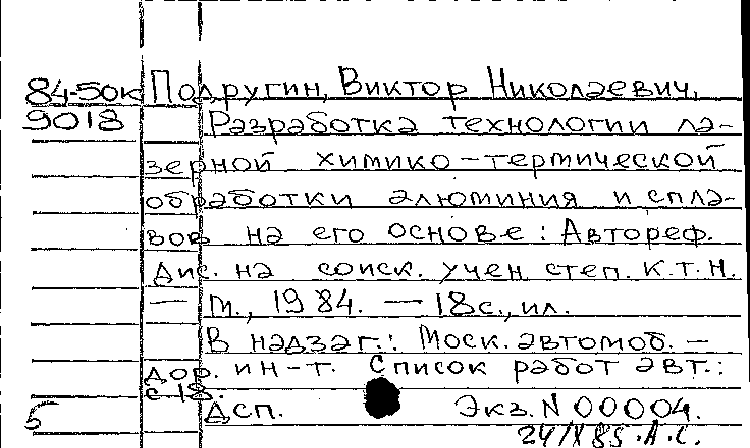 84-50к Подругин, Виктор Николаевич.
9018 Разработка технологии ла-
зерной химико-термической
обработки алюминия и спла-
вов на его основе: Автореф.
Дис. на соиск. учен степ. к.т.н.
— М., 1984. — 18 с., ил.
В надзаг.: Моск. автомоб. -
дор. ин-т. Список работ авт.:
с 18.
5 Дсп. Экз. N 00004.
24/X 85. А.С.